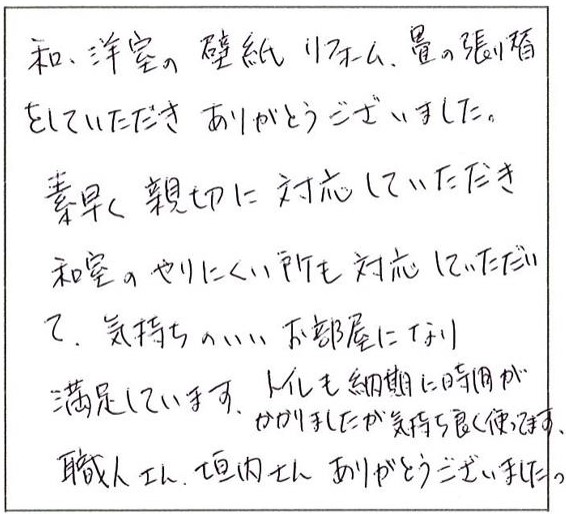 和、洋室の 壁紙 リフォーム、畳の張り替
をしていただき ありがとうございました。
素早く 親切に 対応していただき
和室の やりにくい所も 対応していただい
て、気持ちのいい お部屋になり
満足しています、トイレも納期に時間が
かかりましたが気持ち良く使ってます、
職人さん、垣内さん ありがとうございました。